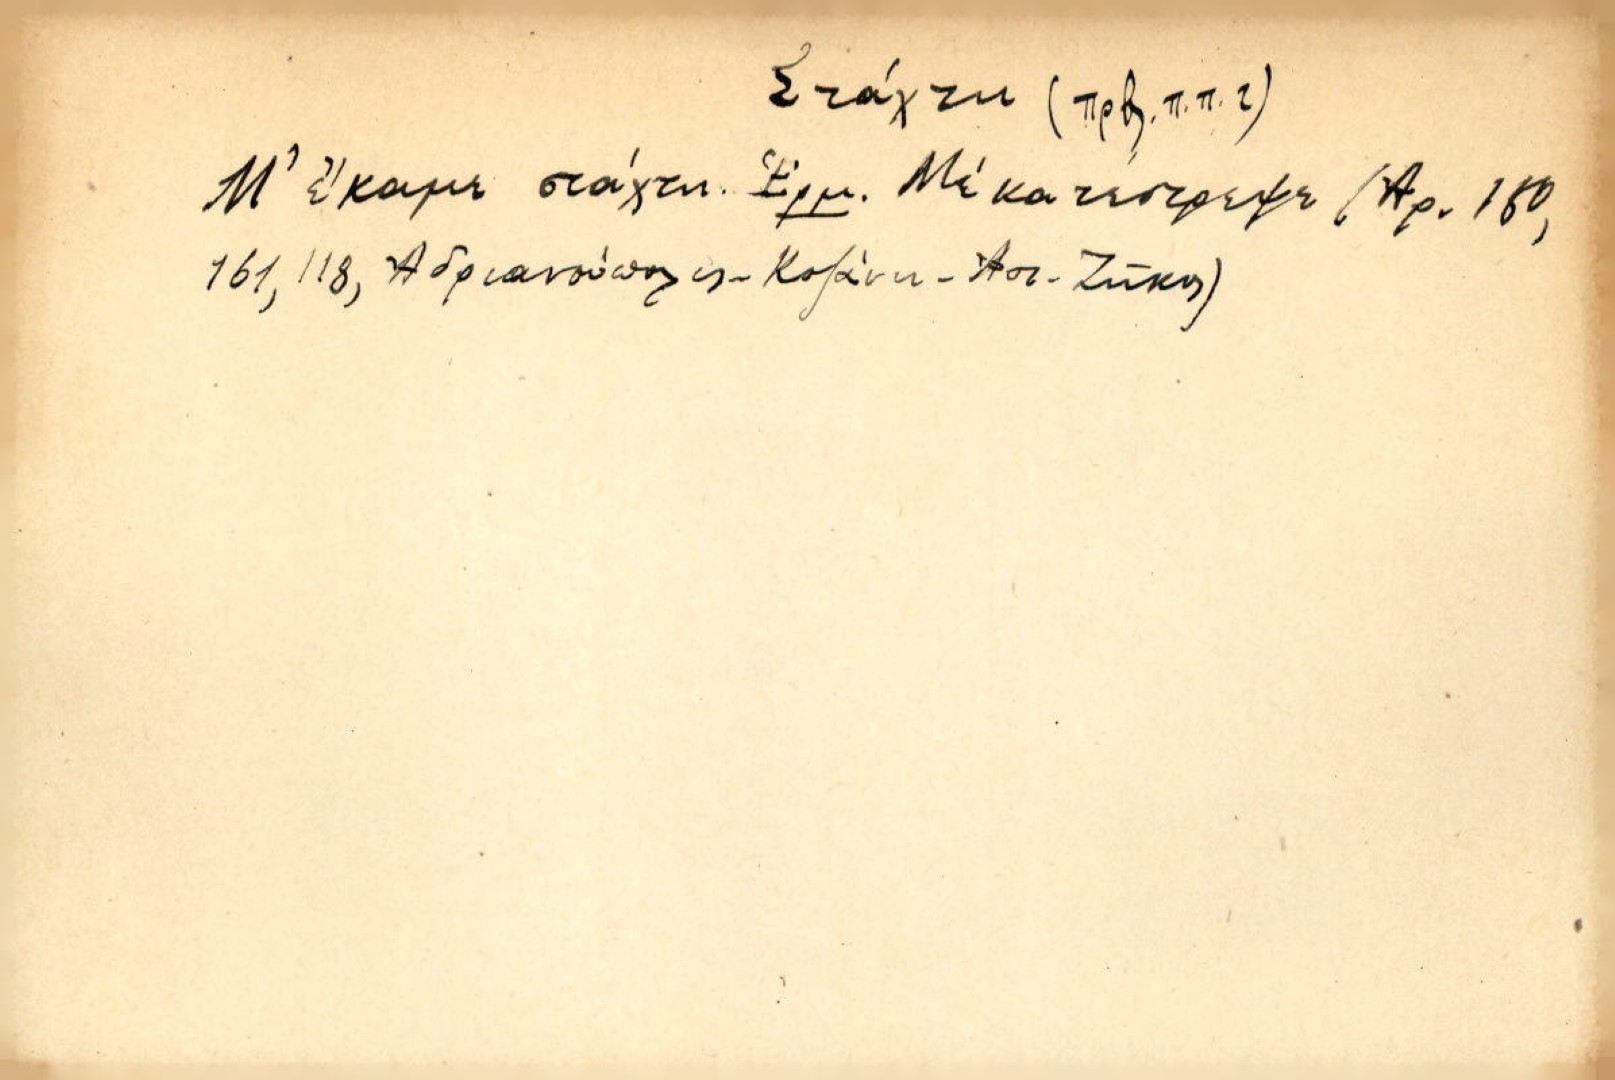 Στάχτη (πρβ. π.π. 2)
Μ' ἔκαμε στάχτη. Ἑρμ. Μέ κατέστρεψε (Ἀρ. 160,
161, 118, Ἀδριανούπολις - Κοζάνη - Ἀστ. Ζῆκος)